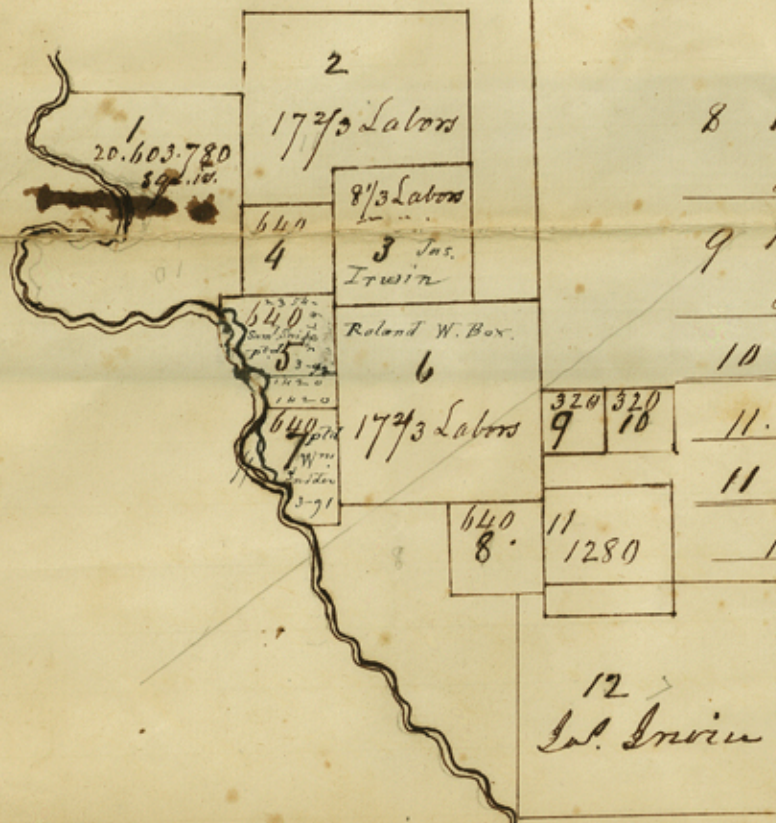 2
17 2/3 Labors
1
20.603.780
sqr. vs.
8 1/3 Labors
3 Jas.
Irwin
640
4
640
5
3-92
1420
1420
Roland W. Box.
6
17 2/3 Labors
640
7 ptd
Wm
3-91
320
9
320
10
640
8.
11
1280
12
Jas. Irwin
8
9
10
11.
11